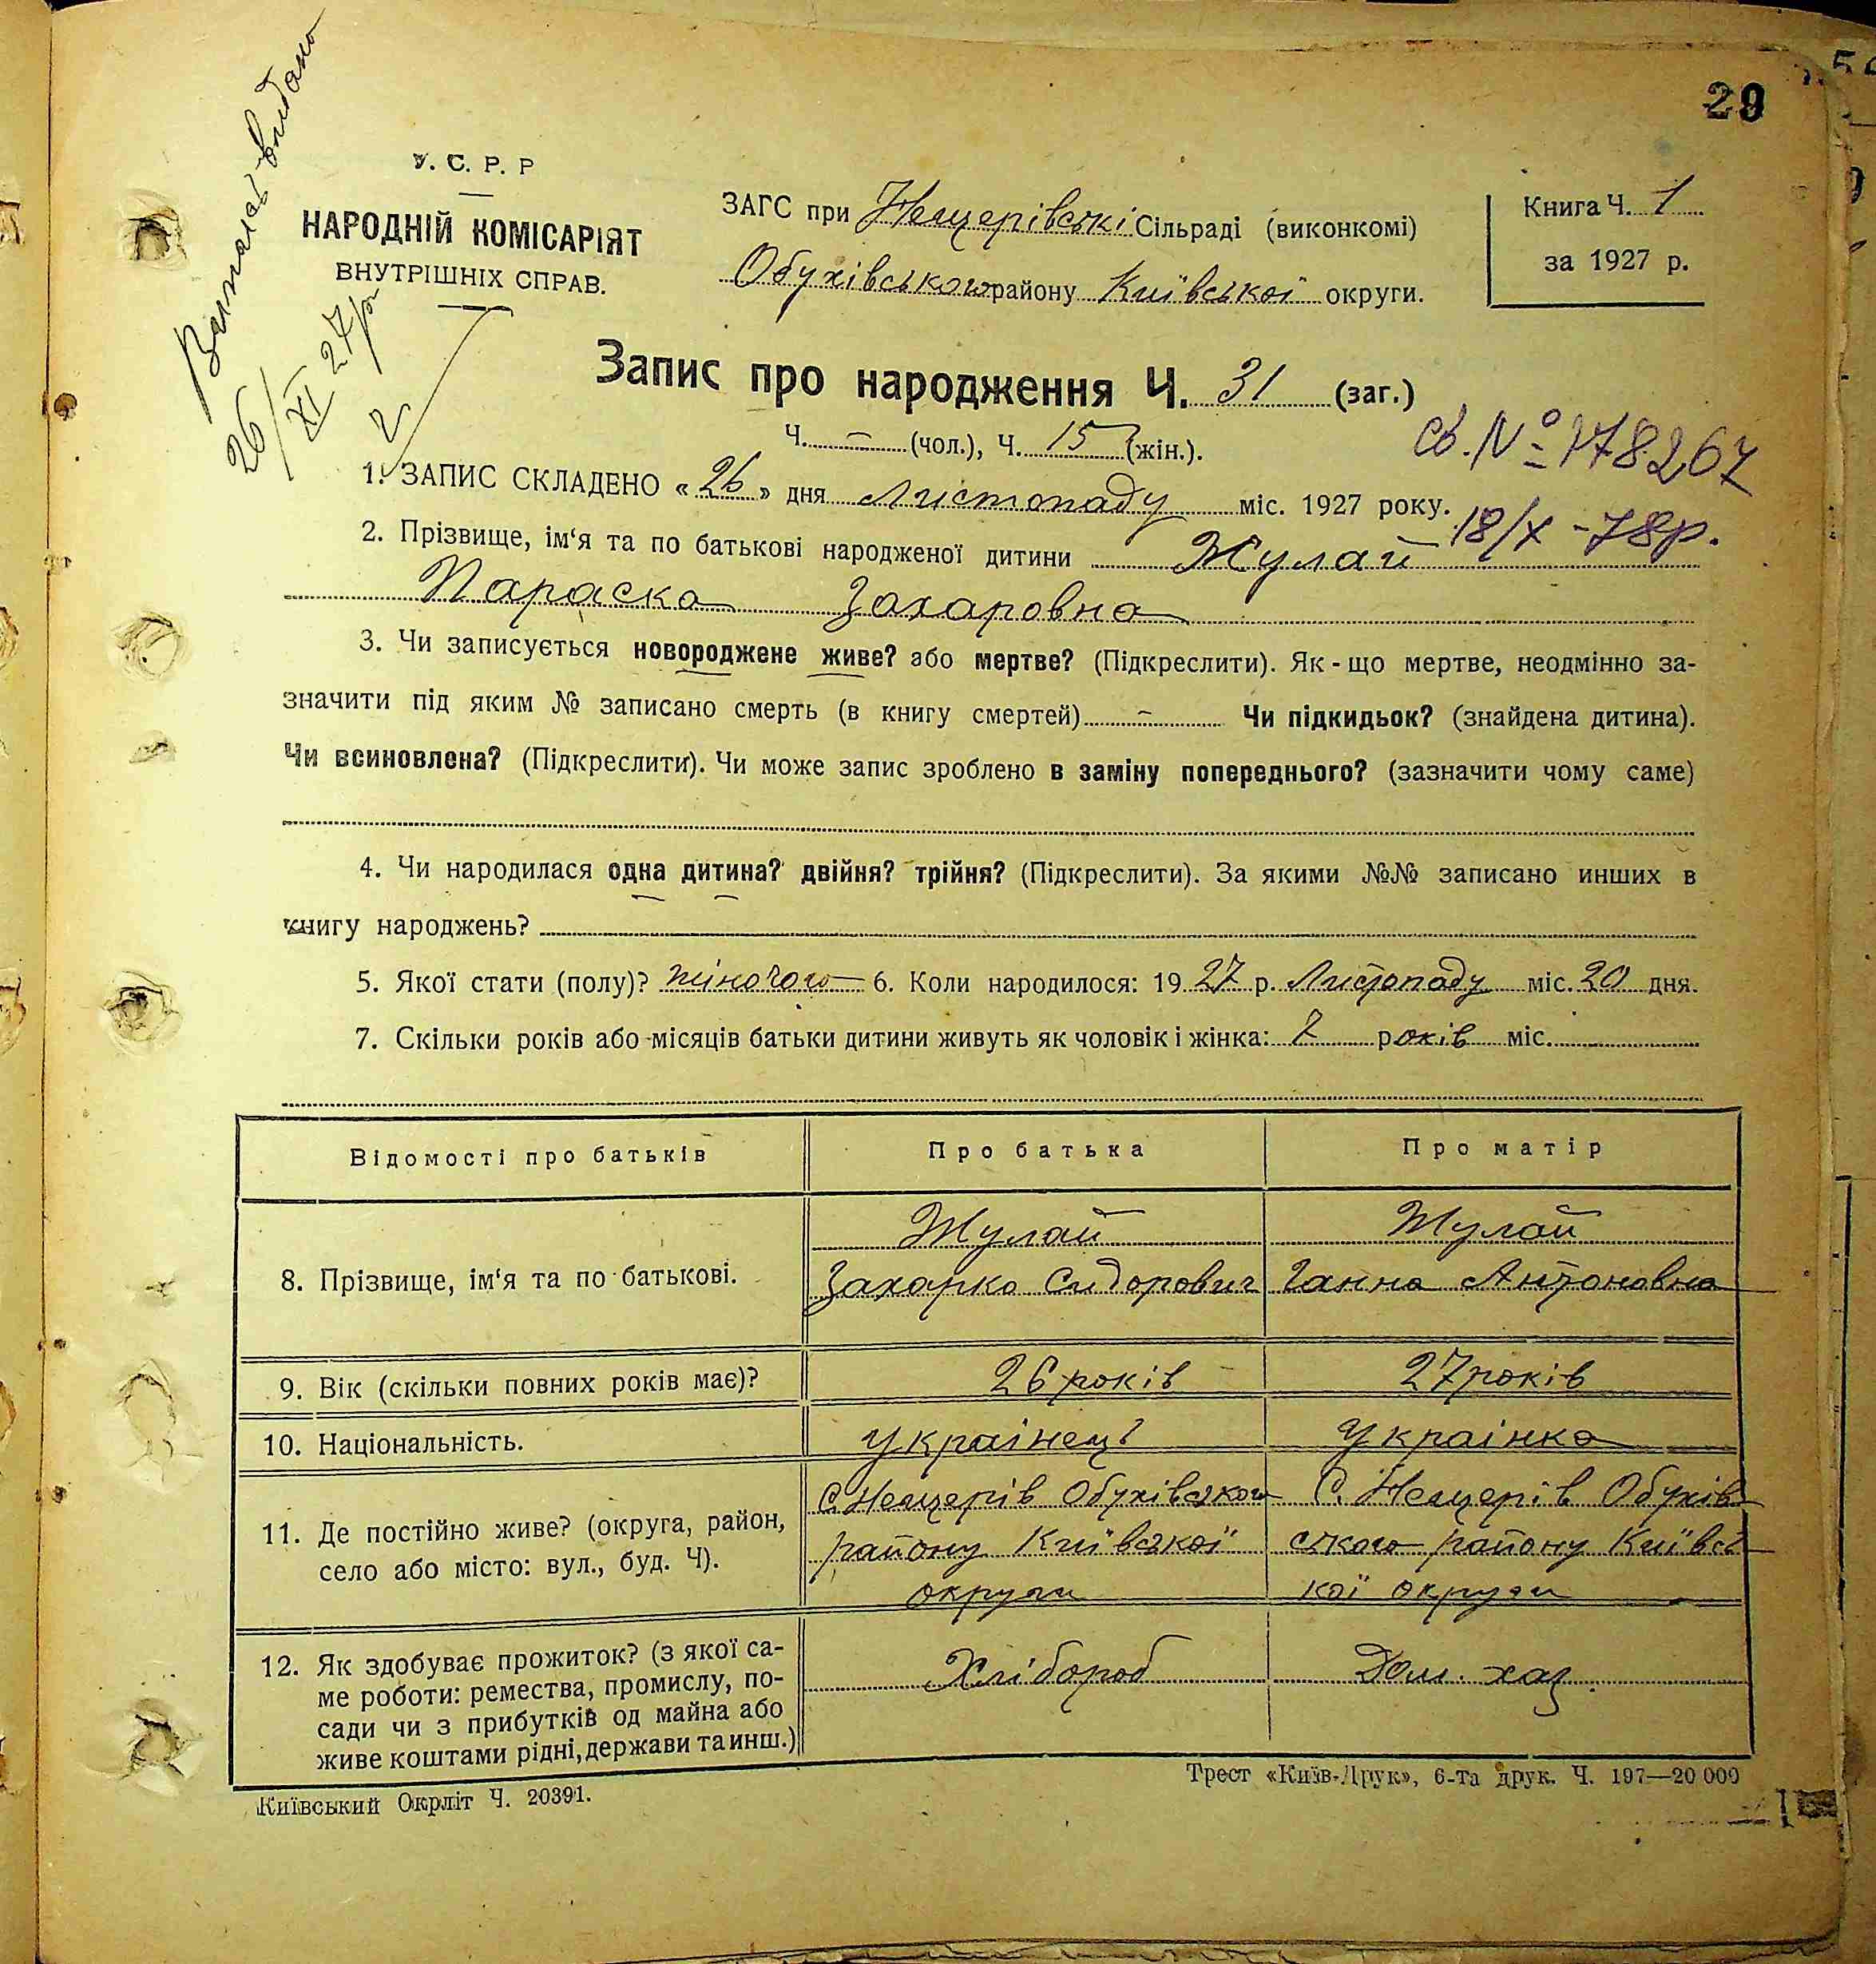 29
Витяг видано
26/XI 27р
У. С. Р. Р
НАРОДНІЙ КОМІСАРІЯТ
ВНУТРІШНІХ СПРАВ.
ЗАГС при Нещерівські Сільраді (виконкомі)
Обухівського району Київської округи.
Книга Ч. 1
за 1927 р.
Запис про народження Ч. 31 (заг.)
Ч. – (чол.), Ч. 15 (жін.).
св. № 178267
18/X - 78р.
1. ЗАПИС СКЛАДЕНО «26» дня Листопаду міс. 1927 року.
2. Прізвище, ім‘я та по батькові народженої дитини Жулай
Параска Захаровна
3. Чи записується новороджене живе? або мертве? (Підкреслити). Як-що мертве, неодмінно за-
значити під яким № записано смерть (в книгу смертей) – Чи підкидьок? (знайдена дитина).
Чи всиновлена? (Підкреслити). Чи може запис зроблено в заміну попереднього? (зазначити чому саме)
4. Чи народилася одна дитина? двійня? трійня? (Підкреслити). За якими №№ записано инших в
книгу народжень?
5. Якої стати (полу)? жіночого 6. Коли народилося: 1927 р. Листопаду міс. 20 дня.
7. Скільки років або місяців батьки дитини живуть як чоловік і жінка: 7 років міс.
Відомості про батьків
Про батька
Про матір
8. Прізвище, ім‘я та по батькові.
Жулай
Захарко Сидорович
Жулай
Ганна Антоновна
9. Вік (скільки повних років має)?
26 років
27 років
10. Національність.
українець
Українка
11. Де постійно живе? (округа, район,
село або місто: вул., буд. Ч).
С. Нещерів Обухівського
району Київської
округи
С. Нещерів Обухів
ського району Київсь
кої округи
12. Як здобуває прожиток? (з якої са-
ме роботи: ремества, промислу, по-
сади чи з прибутків од майна або
живе коштами рідні, держави та инш.)
Хлібороб
Дом. хаз.
Київський Окрліт Ч. 20391.
Трест «Київ-Друк», 6-та друк. Ч. 197—20 000